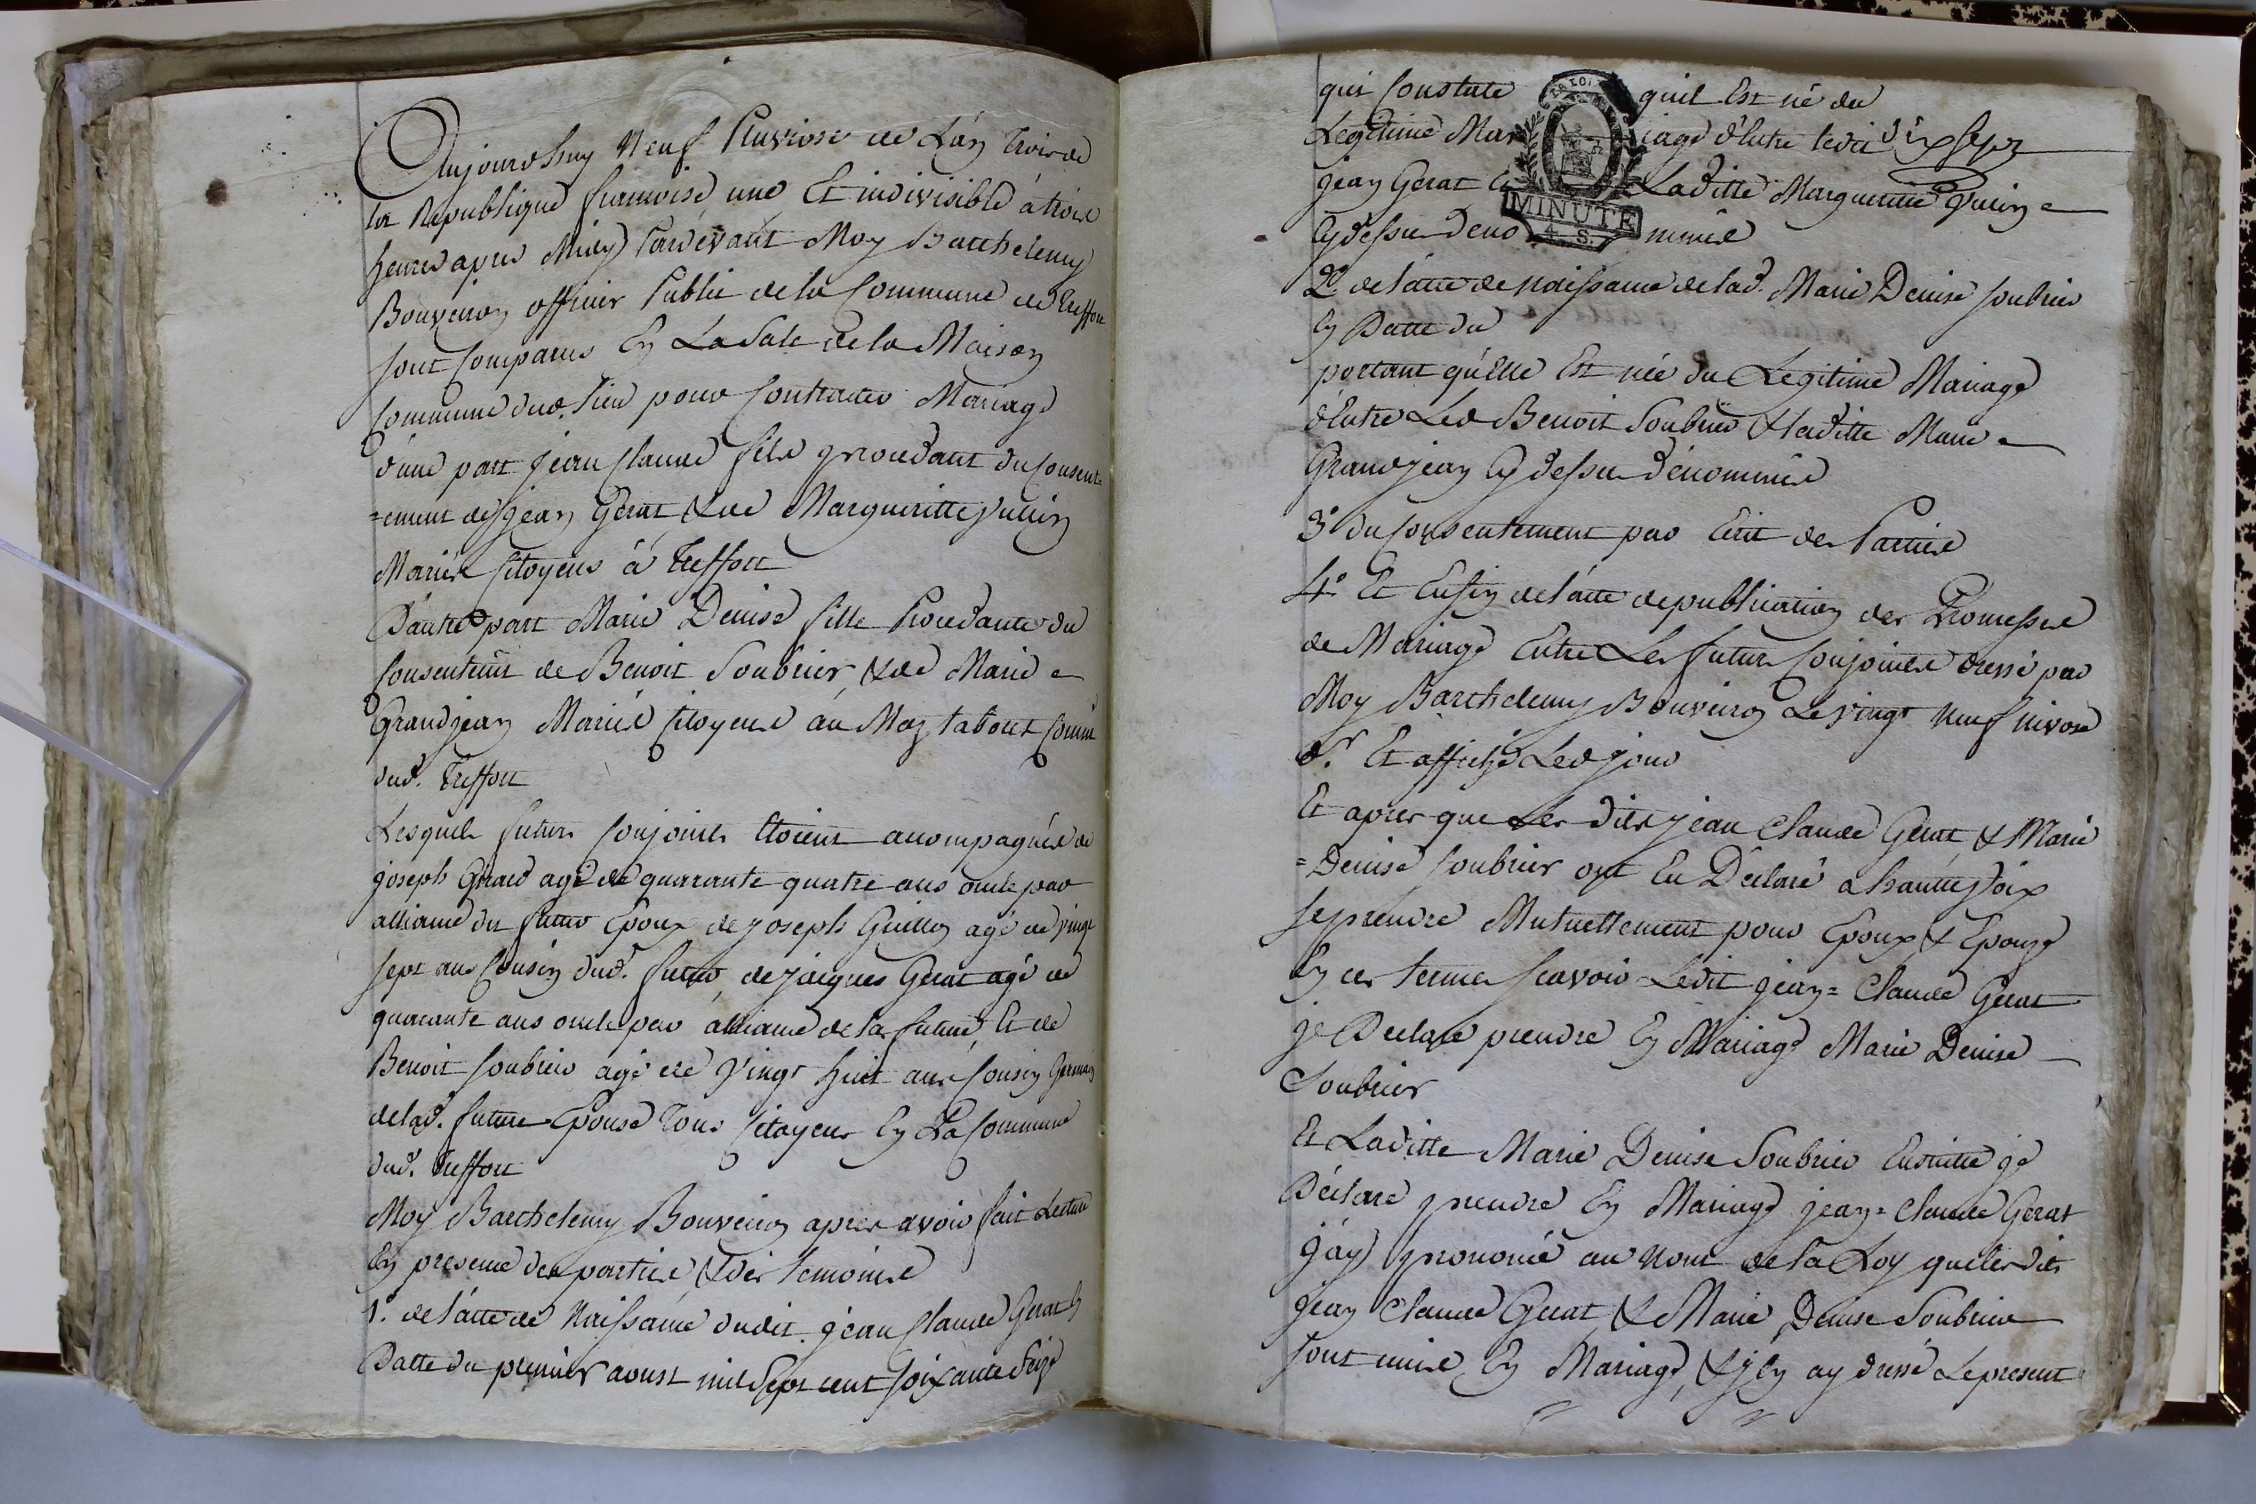 Aujourdhuy Neuf Pluviose de L'an Trois de
la Republique francoise une Et indivisible à trois
heures apres Midy Pardevant Moy Barthelemy
Bouveiron officier Public de la Commune de Treffort
sont Comparus En La Sale de la Maison
Commune dud. lieu pour Contracter Mariage
d'une part Jean Claude fils procedant du Consent
=ement de Jean Gerat & de Margueritte Vuiin
Mariés Citoyens à Treffort
D'autre part Marie Denise fille Procedante du
Consentemt de Benoit Soubrier, & de Marie
Grandjean Mariés Citoyens au Maz tabouret Comm
dud. Treffort
Lesquels futurs Conjoints Etoient accompagnés de
joseph Girard agé de quarante quatre ans oncle par
alliance du futur Epoux de joseph Guillon agé de vingt
sept ans Cousin dud. futur, de jacques Gerat agé de
quarante ans oncle par alliance de la future, Et de
Benoit Soubrier agé de Vingt huit ans Cousin Germain
de lad. future Epouse Tous Citoyens En La Commune
dud. Treffort
Moy Barthelemy Bouveiron apres avoir fait Lecture
En presence des parties & des temoins
1.° de l'acte de Naissance dudit jean Claude Gerat En
Datte du premier aoust mil Sept cent soixante Seize
qui Constate quil Est né du
Legitime Mariage d'Entre ledit
jean Gerat Et Laditte Margueritte Vuiin
Cy dessus Denommés
MINUTE
4. S.
2.° de l'acte de Naissance de lad. Marie Denise Soubrier
En Datte du
portant qu'Elle Est née du Legitime Mariage
d'Entre Led Benoit Soubrier & laditte Marie
Grandjean Cy dessus dénommés
3.° du Consentement par Ecrit des Parties
4.° Et Enfin de l'acte de publication des Promesses
de Mariage Entre Les futurs Conjoints dressé par
Moy Barthelemy Bouveiron Le Vingt Neuf Nivose
dr. Et affiché Led jour
Et apres que Les dits jean Claude Gerat & Marie
=Denise Soubrier ont Eu Déclaré a hautte Voix
se prendre Mutuellement pour Epoux & Epouze
En ces termes scavoir Ledit jean= Claude Gerat
je Declare prendre En Mariage Marie Denise
Soubrier
Et Laditte Marie Denise Soubrier Ensuitte je
Déclare prendre En Mariage jean= Claude Gerat
j'ay prononcé au Nom de la Loy que les dits
jean Claude Gerat & Marie Denise Soubrier
sont unis En Mariage, & j'En ay dressé Le present